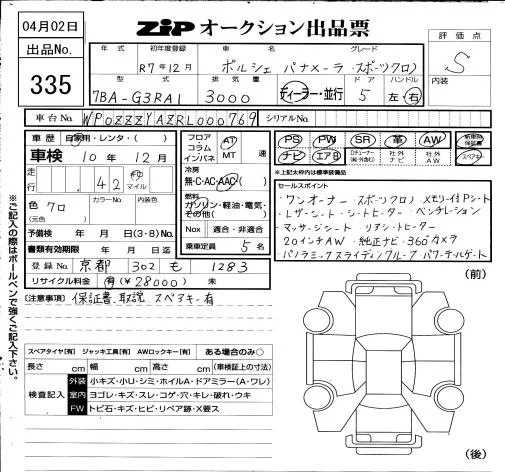 04月02日
ZIP オークション出品票
出品No.
335
評価点
S
内装
年式 初年度登録 車名 グレード
R7年12月 ポルシェ パナメーラ スポーツクロノ
型式 排気量 ドア ハンドル
7BA-G3RA1 3000 ディーラー・並行 5 左・右
車台No. WP0ZZZYAZRL000769 シリアルNo.
車歴 自家用・レンタ・( )
車検 10年 12月
走行 .42 キロ マイル
色 クロ (元色) カラーNo. 内装色
予備検 年 月 日(3・8)No.
書類有効期限 年 月 日迄
登録No. 京都 302 も 1283
リサイクル料金 有(¥28000) 未
フロア コラム インパネ AT MT 速
冷房 無・C・AC・AAC・( )
燃料 ガソリン・軽油・電気・その他( )
Nox 適合・非適合
乗車定員 5 名
PS PW SR 革 AW 新車時保証書
ナビ エアB 社外ナビ 社外AW スペアキー
※上記太枠内は標準装備品
セールスポイント
ワンオーナー スポーツクロノ メモリー付Pシート
レザーシート シートヒーター ベンチレーション
マッサージシート リアシートヒーター
20インチAW 純正ナビ 360°カメラ
パノラミックスライディングルーフ パワーテールゲート
(注意事項) 保証書、取説 スペアキー有
※ご記入の際はボールペンで強くご記入下さい。
スペアタイヤ[有] ジャッキ工具[有] AWロックキー[有] ある場合のみ○
長さ cm 幅 cm 高さ cm (車検証上の寸法)
検査記入
外装 小キズ・小U・シミ・ホイルA・ドアミラー(A・ワレ)
室内 ヨゴレ・キズ・スレ・コゲ・穴・キレ・破れ・ウキ
FW トビ石・キズ・ヒビ・リペア跡・X要ス
(前)
(後)